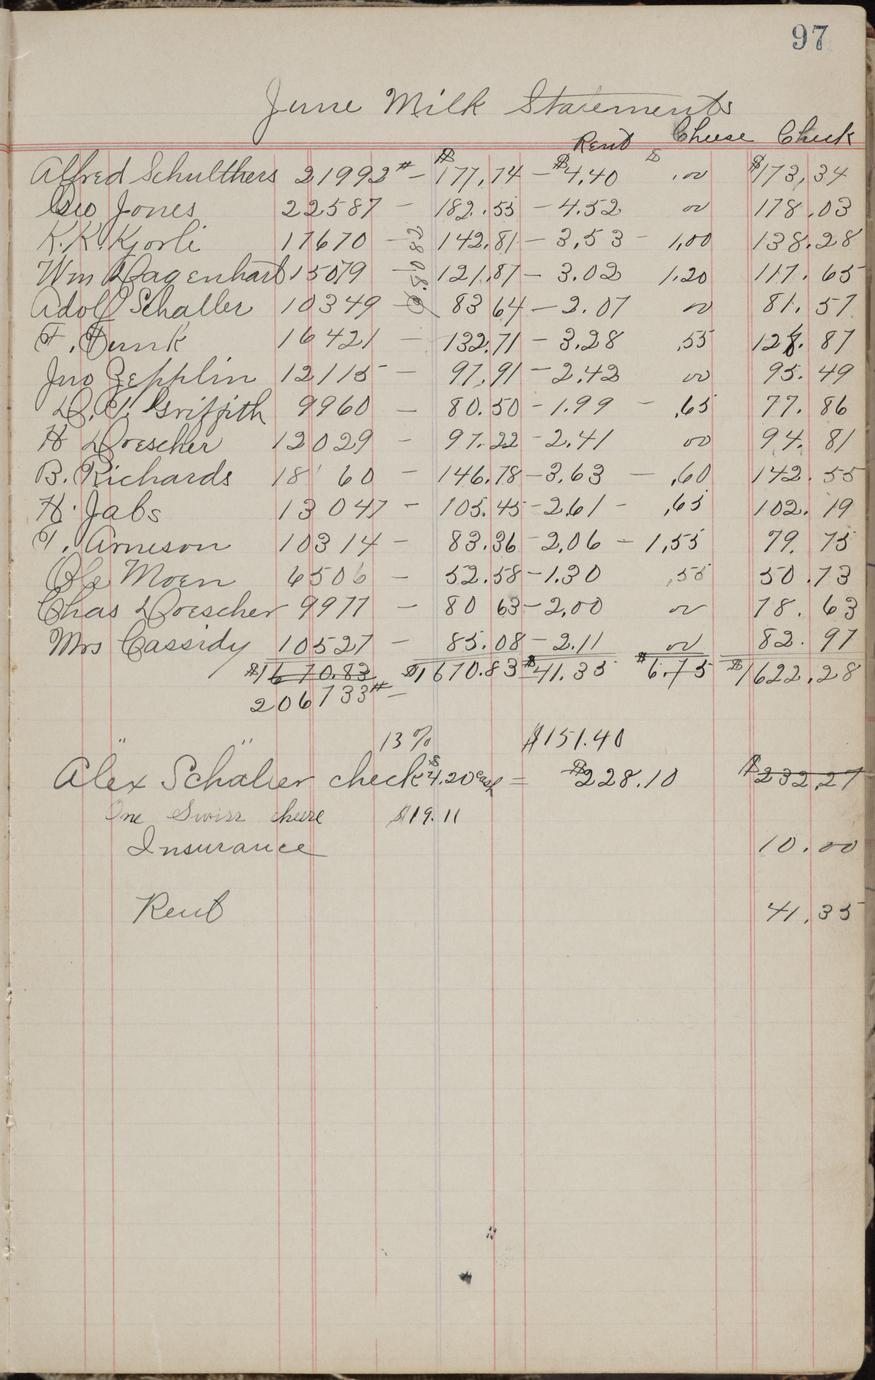 97
June Milk Statements
Rent Cheese Check
Alfred Schulthers 21992# - $177.74 - $4.40 $ .00 $173.34
Geo Jones 22587 - 182.55 - 4.52 00 178.03
K. K. Kjorli 17670 - 142.81 - 3.53 - 1.00 138.28
Wm Dagenhart 15079 121.87 - 3.02 1.20 117.65
$.8082
Adolf Schaller 10349 83 64 - 2.07 00 81.57
F. Funk 16421 - 132.71 - 3.28 .55 128.87
Jno Zepplin 12115 - 97.91 - 2.42 00 95.49
D. E. Griffith 9960 - 80.50 - 1.99 - .65 77.86
H Doescher 12029 - 97.22 - 2.41 00 94.81
B. Richards 18 60 - 146.78 - 3.63 - .60 142.55
H. Jabs 13047 - 105.45 - 2.61 - .65 102.19
T. Arneson 10314 - 83.36 - 2.06 - 1.55 79.75
Ole Moen 6506 - 52.58 - 1.30 .55 50.73
Chas Doescher 9977 - 80 63 - 2.00 00 78.63
Mrs Cassidy 10527 - 85.08 - 2.11 00 82.97
$1670.83 $1670.83 $41.35 $6.75 $1622.28
206733# -
" " 13% $151.40
Alex Schaller check $4.20 = $228.10 $232.27
One Swiss cheese $19.11
Insurance 10.00
Rent 41.35